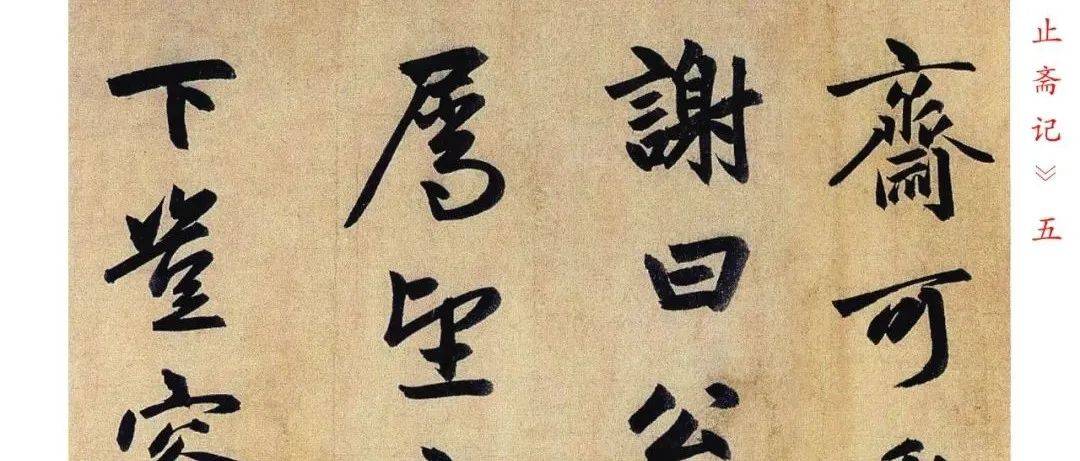 止斋记》五
齋可
謝曰公
屬望
下豈容